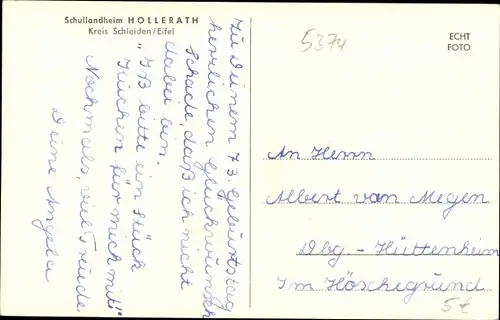 Schullandheim HOLLERATH
Kreis Schleiden/Eifel
Zu Deinem 73. Geburtstag
herzlichen Glückwunsch
Schade, daß ich nicht
dabei bin.
"Iß bitte ein Stück
Kuchen für mich mit!"
Nochmals, viel Freude
Deine Angela
5374
ECHT
FOTO
An Herrn
Albert van Megen
Dbg - Hüttenheim
Im Höschegrund
5€